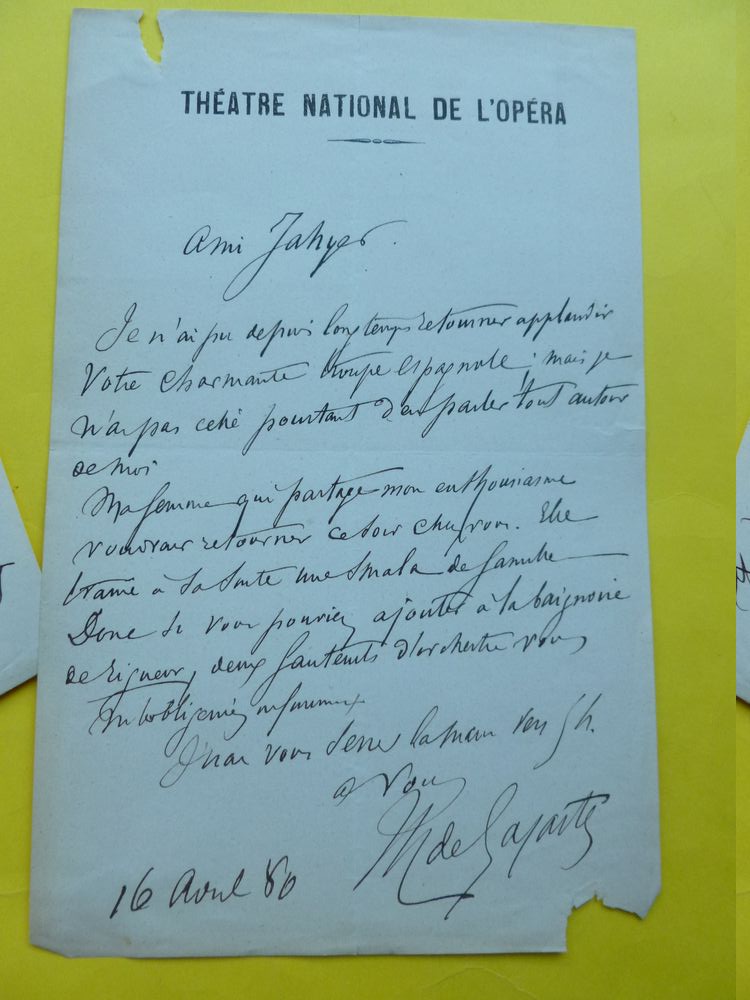 THÉATRE NATIONAL DE L'OPÉRA
Ami Jahyer.
Je n'ai pu depuis longtemps retourner applaudir
Votre charmante troupe espagnole; mais je
n'ai pas cessé pourtant d'en parler tout autour
de moi
Ma femme qui partage mon enthousiasme
voudrait retourner ce soir chez vous. Elle
traine à sa suite une smala de famille
Donc si vous pouviez ajouter à la baignoire
de rigueur, deux fauteuils d'orchestre vous
m'obligeriez
J'irai vous serrer la main vers 5 h.
a Vous
Th de Lajarte
16 Avril 80